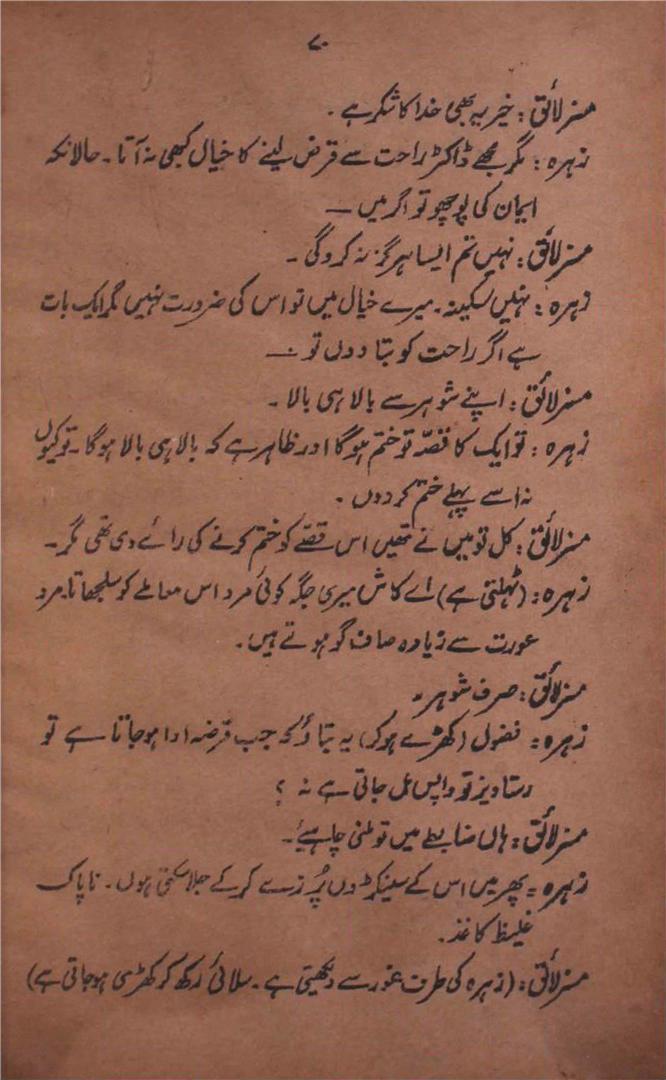 ۷۰
مسز لائق: خیر یہ بھی خدا کا شکر ہے۔
زہرہ: مگر مجھے ڈاکٹر راحت سے قرض لینے کا خیال کبھی نہ آتا۔ حالانکہ
ایمان کی پوچھو تو اگر میں —
مسز لائق: نہیں تم ایسا ہرگز نہ کرو گی۔
زہرہ: نہیں سکینہ۔ میرے خیال میں تو اس کی ضرورت نہیں مگر ایک بات
ہے اگر راحت کو بتا دوں تو —
مسز لائق: اپنے شوہر سے بالا ہی بالا۔
زہرہ: تو ایک کا قصّہ تو ختم ہوگا اور ظاہر ہے کہ بالا ہی بالا ہوگا۔ تو کیوں
نہ اسے پہلے ختم کر دوں۔
مسز لائق: کل تو میں نے تمھیں اس قصّے کو ختم کرنے کی رائے دی تھی مگر۔
زہرہ: (ٹہلتی ہے) اے کاش میری جگہ کوئی مرد اس معاملے کو سلجھاتا۔ مرد
عورت سے زیادہ صاف گو ہوتے ہیں۔
مسز لائق: صرف شوہر۔
زہرہ: فضول (کھڑے ہوکر) یہ بتاؤ کہ جب قرضہ ادا ہو جاتا ہے تو
دستاویز تو واپس مل جاتی ہے نہ ؟
مسز لائق: ہاں ضابطے میں تو ملنی چاہیئے۔
زہرہ: پھر میں اس کے سینکڑوں پُرزے کرکے جلا سکتی ہوں۔ ناپاک
غلیظ کاغذ۔
مسز لائق: (زہرہ کی طرف غور سے دیکھتی ہے۔ سلائی رکھ کر کھڑی ہوجاتی ہے)